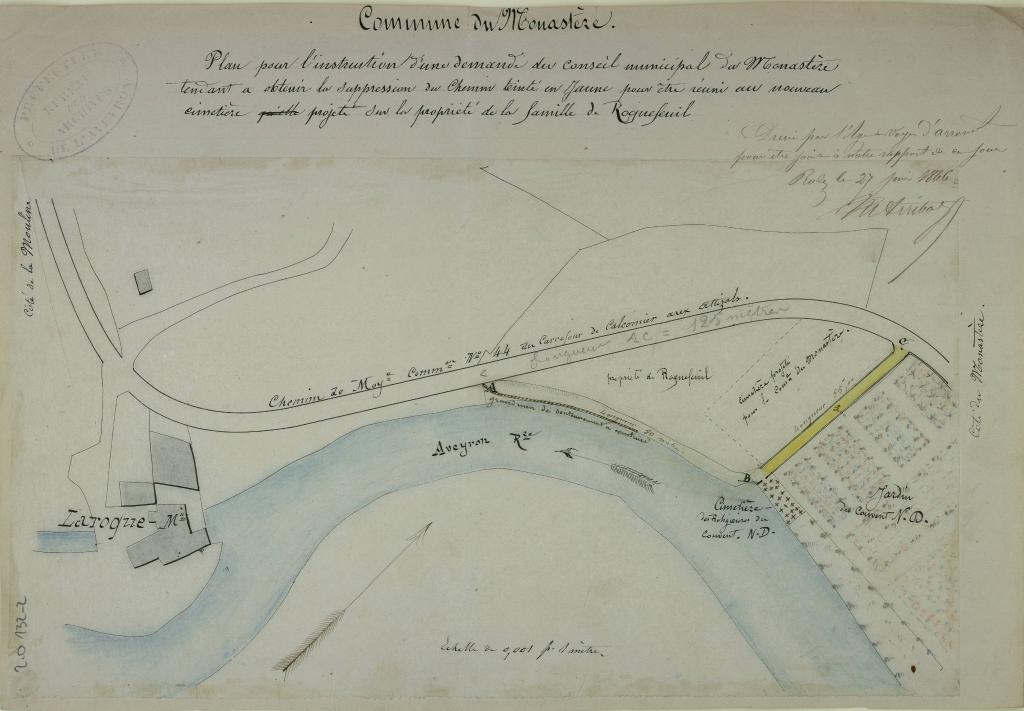 Commune du Monastère.
Plan pour l'instruction d'une demande du conseil municipal du Monastère
tendant a obtenir la suppression du Chemin teinté en Jaune pour être réuni au nouveau
cimetière projeté sur la propriété de la famille de Roquefeuil
PRÉFECTURE
ARCHIVES
DE L'AVEYRON
Dressé par l'Agent-Voyer d'arrond^t
pour être joint à notre rapport de ce jour
Rodez le 27 juin 1866
Côté de la Mouline
Chemin de Moy^e Comm^on N° 44 du Carrefour de Calcomier aux Attizals.
Longueur AC = 195 mètres
propriété de Roquefeuil
Cimetière projeté
pour la Com^e du Monastère.
C
Longueur 55^m
Côté du Monastère.
A
grand mur de soutènement à construire
Longueur 80 mètres
Aveyron R^re
B
Cimetière
des Religieuses du
Couvent. N.D.
Jardin
du Couvent N.D.
Laroque - M^in
Echelle de 0,001 p^r 1 mètre.
20 132-2